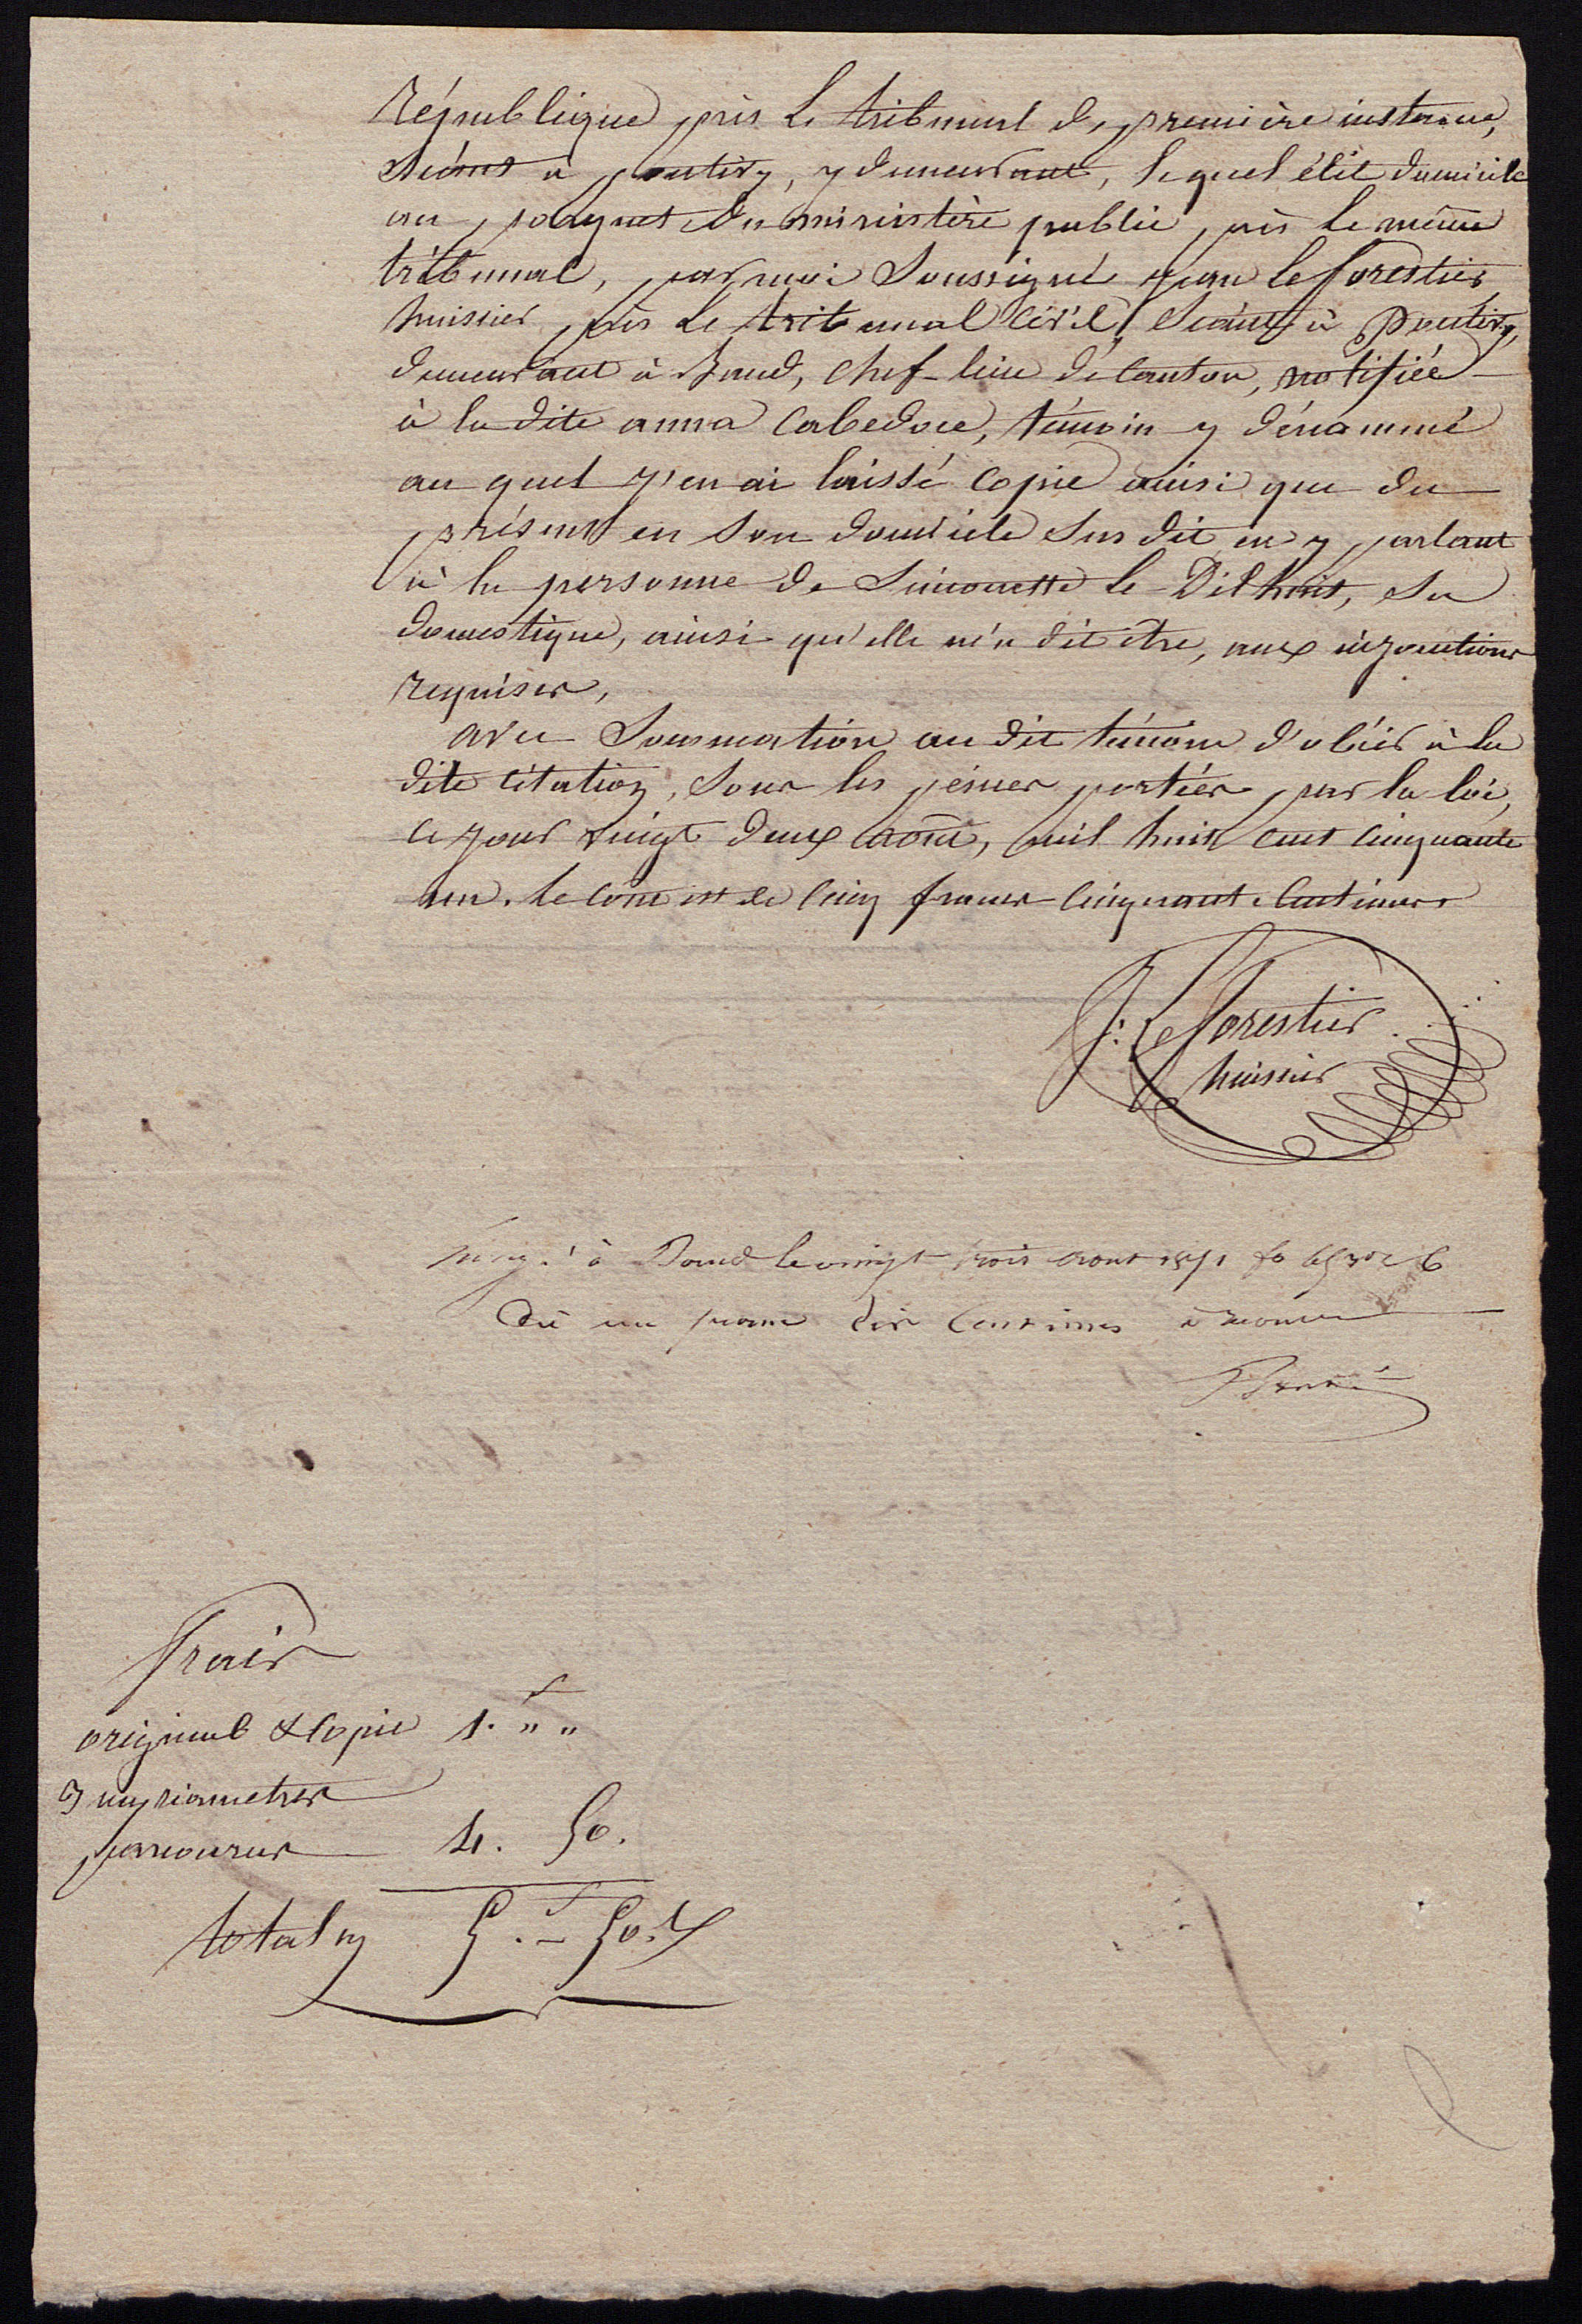 République près le tribunal de première instance,
séant à pontivy, y demeurant, lequel élit domicile
au parquet du ministère public près le même
tribunal, par moi soussigné jean le forestier
huissier près le tribunal civil, séant à pontivy,
demeurant à Baud, chef-lieu de canton, notifiée
à la dite anna Cabedoce, témoin y dénommé
au quel j'en ai laissé copie ainsi que du
présent en son domicile sus dit en y parlant
à la personne de Simonette le Dilhuit, sa
domestique, ainsi qu'elle m'a dit être, aux injonctions
requises,
avec sommation au dit témoin d'obéir à la
dite citation, sous les peines portées par la loi,
ce jour vingt deux août, mil huit cent cinquante
un. le coût est de cinq francs cinquante centimes
J: Le forestier
huissier
à Baud le vingt trois aout 1851 fo
Dû un franc dix centimes
frais
original & copie 1. f " "
3 myriametres
parcourus 4. 50.
total 5. f 50.